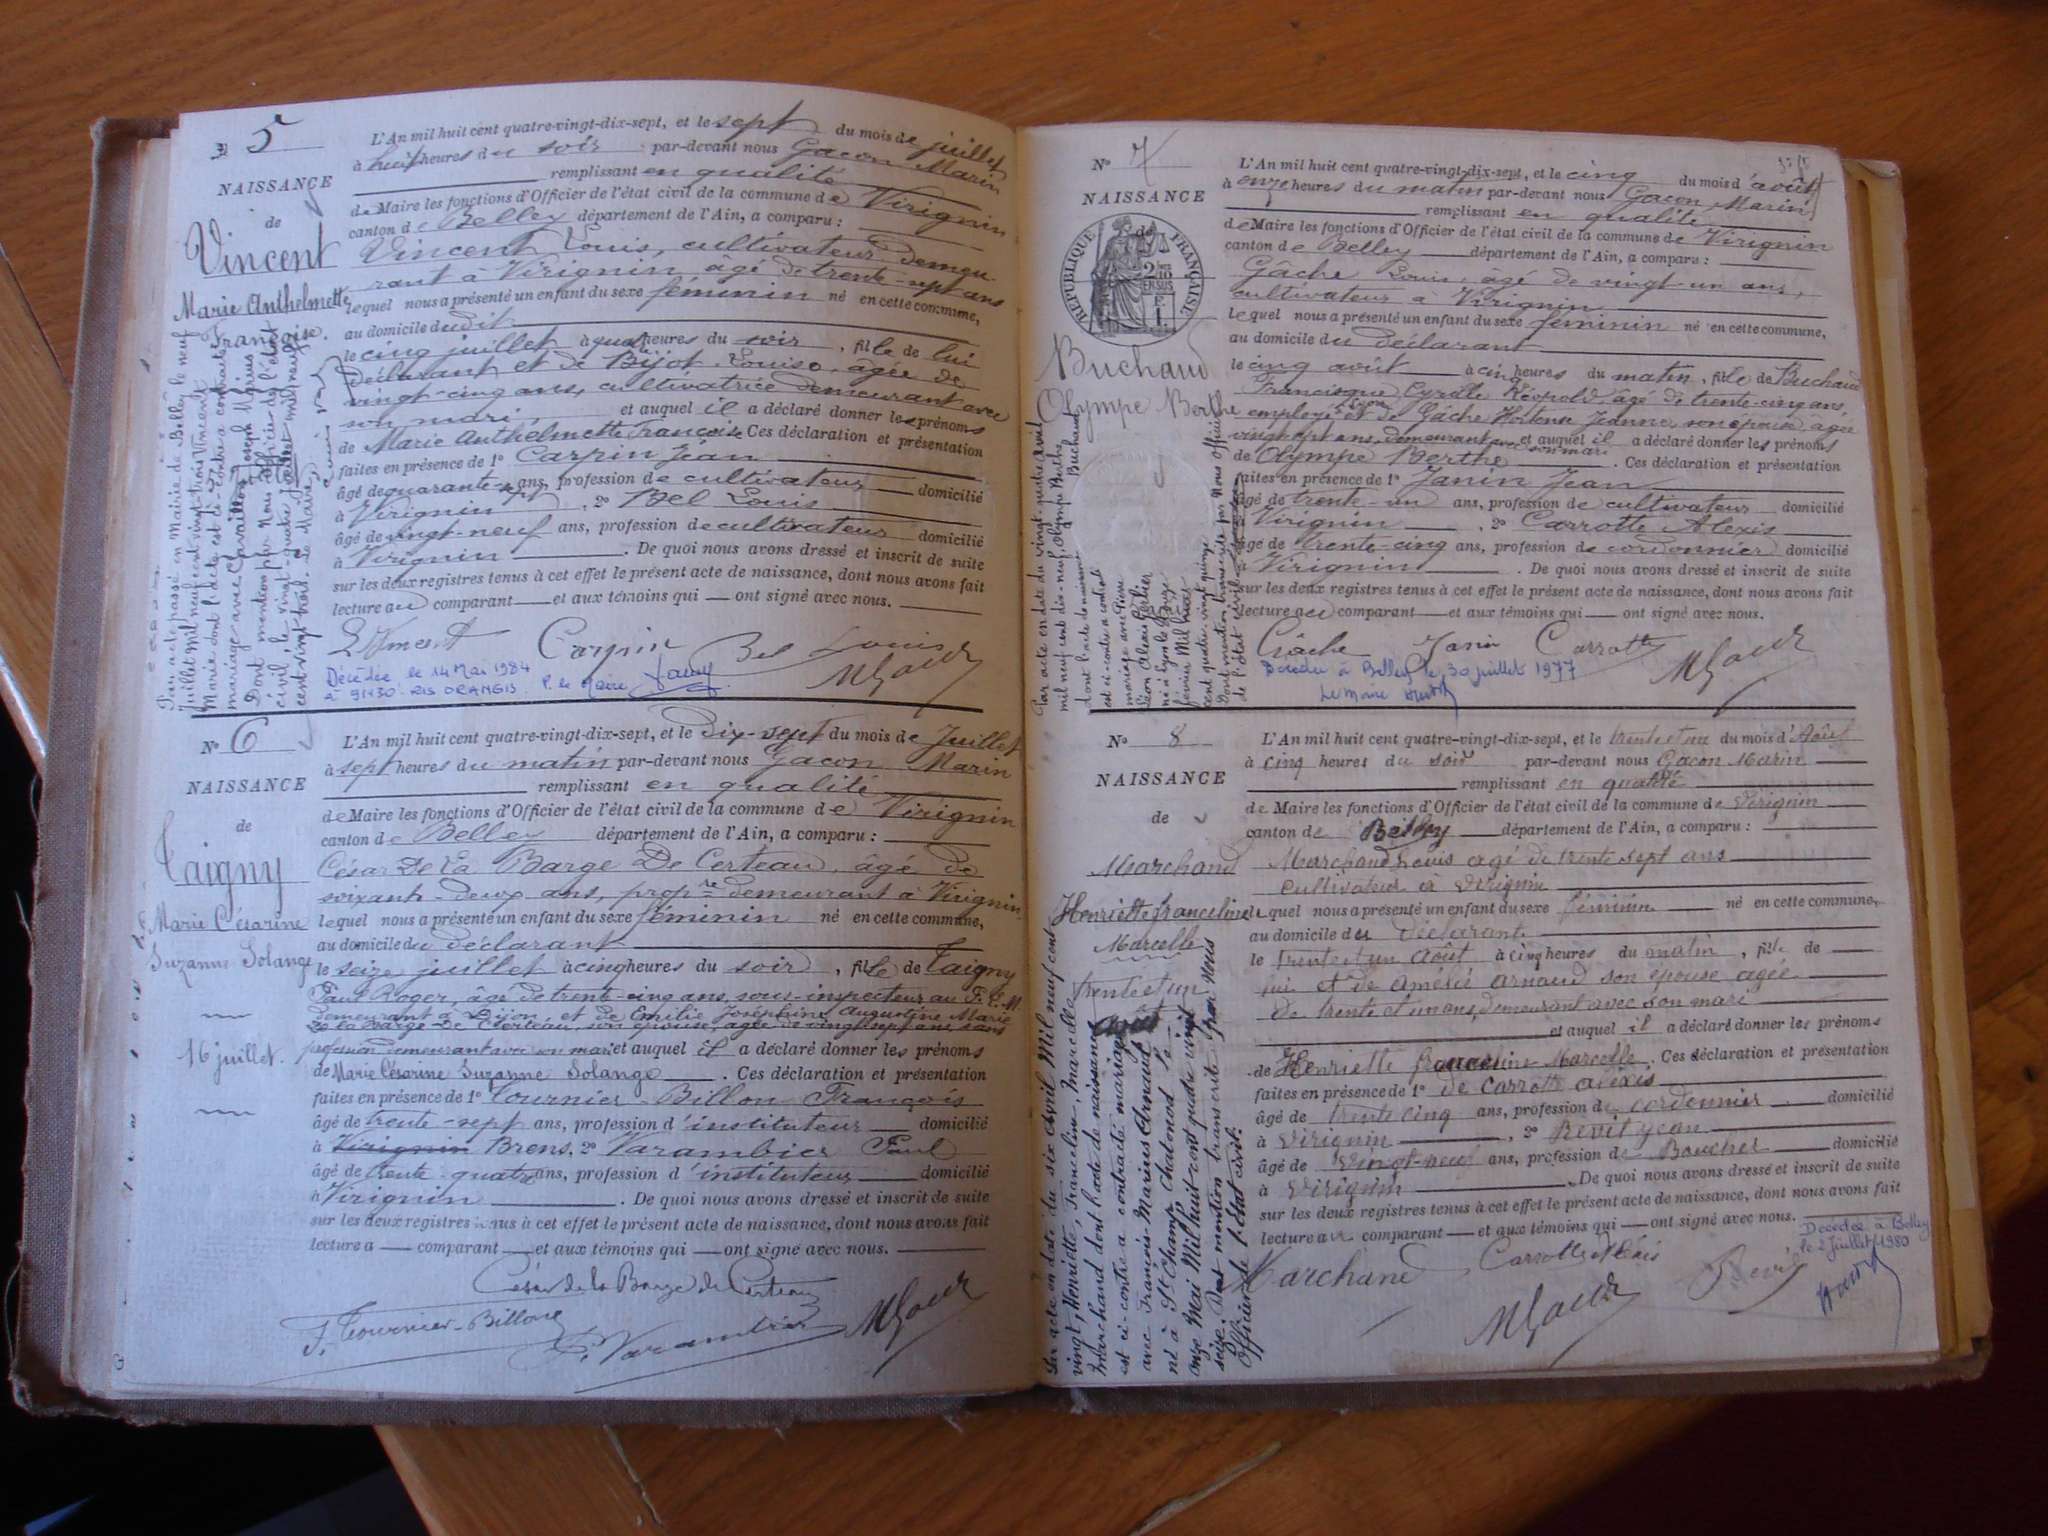 5
NAISSANCE
de
Vincent
Marie Anthelmette
Françoise.
L'An mil huit cent quatre-vingt-dix-sept, et le sept du mois de juillet
à huit heures du soir par-devant nous Gacon Marin
remplissant en qualité
de Maire les fonctions d'Officier de l'état civil de la commune de Virignin
canton de Belley département de l'Ain, a comparu :
Vincent Louis, cultivateur demeu-
rant à Virignin, âgé de trente-sept ans
lequel nous a présenté un enfant du sexe féminin né en cette commune,
au domicile dudit
le cinq juillet à quatre heures du soir, fille de lui
déclarant et de Bijot Louise, âgée de
vingt-cinq ans, cultivatrice demeurant avec
son mari, et auquel il a déclaré donner les prénoms
de Marie Anthelmette Françoise Ces déclaration et présentation
faites en présence de 1° Carpin Jean
âgé de quarante-sept ans, profession de cultivateur domicilié
à Virignin, 2° Bel Louis
âgé de vingt-neuf ans, profession de cultivateur domicilié
à Virignin. De quoi nous avons dressé et inscrit de suite
sur les deux registres tenus à cet effet le présent acte de naissance, dont nous avons fait
lecture au comparant et aux témoins qui ont signé avec nous.
Carpin Bel Louis
Décédée le 14 Mai 1984
à 91130 RIS ORANGIS P. le Maire
Par acte passé en Mairie de Belley le neuf
juillet mil neuf cent vingt-trois Vincent
Marie dont l'acte est ci-contre a contracté
mariage avec Cavaillon Joseph Marius
Dont mention par Nous Officier de l'état
civil, le vingt-quatre juillet mil neuf
cent vingt-trois. Le Maire,
N° 6
NAISSANCE
de
Taigny
Marie Césarine
Suzanne Solange
16 juillet.
L'An mil huit cent quatre-vingt-dix-sept, et le Dix-sept du mois de Juillet
à sept heures du matin par-devant nous Gacon Marin
remplissant en qualité
de Maire les fonctions d'Officier de l'état civil de la commune de Virignin
canton de Belley département de l'Ain, a comparu :
César De La Barge De Certeau, âgé de
soixante-deux ans, prop.re demeurant à Virignin
lequel nous a présenté un enfant du sexe féminin né en cette commune,
au domicile du déclarant
le seize juillet à cinq heures du soir, fille de Taigny
Paul Roger, âgé de trente-cinq ans, sous-inspecteur au P. L. M.
demeurant à Dijon, et de Emilie Joséphine Augustine Marie
De la Barge De Certeau, son épouse, âgée de vingt sept ans, sans
profession demeurant avec son mari et auquel il a déclaré donner les prénoms
de Marie Césarine Suzanne Solange. Ces déclaration et présentation
faites en présence de 1° Tournier-Billon François
âgé de trente-sept ans, profession d'instituteur domicilié
à Virignin Brens, 2° Varambier Paul
âgé de trente-quatre ans, profession d'instituteur domicilié
à Virignin. De quoi nous avons dressé et inscrit de suite
sur les deux registres tenus à cet effet le présent acte de naissance, dont nous avons fait
lecture a comparant et aux témoins qui ont signé avec nous.
César de la Barge de Certeau
F. Tournier-Billon P. Varambier
N° 7
NAISSANCE
de
RÉPUBLIQUE FRANÇAISE
2/10 EN SUS
Buchaud
Olympe Berthe
L'An mil huit cent quatre-vingt-dix-sept, et le cinq du mois d'août
à onze heures du matin par-devant nous Gacon Marin
remplissant en qualité
de Maire les fonctions d'Officier de l'état civil de la commune de Virignin
canton de Belley département de l'Ain, a comparu :
Gâche Louis âgé de vingt-un ans,
cultivateur à Virignin
lequel nous a présenté un enfant du sexe féminin né en cette commune,
au domicile du déclarant
le cinq août à cinq heures du matin, fille de Buchaud
Francisque Cyrille Léopold âgé de trente-cinq ans,
employé à Lyon et de Gâche Hortense Jeanne, son épouse, âgée
vingt sept ans, demeurant avec son mari et auquel il a déclaré donner les prénoms
de Olympe Berthe. Ces déclaration et présentation
faites en présence de 1° Janin Jean
âgé de trente-un ans, profession de cultivateur domicilié
Virignin, 2° Carrotte Alexis
âgé de trente-cinq ans, profession de cordonnier domicilié
Virignin. De quoi nous avons dressé et inscrit de suite
sur les deux registres tenus à cet effet le présent acte de naissance, dont nous avons fait
lecture au comparant et aux témoins qui ont signé avec nous.
Gâche Janin Carrotte
Décédée à Belley le 30 juillet 1977
Le Maire
Par acte en date du vingt-quatre avril
mil neuf cent dix-neuf, Olympe Berthe Buchaud
dont l'acte de naissance
est ci-contre a contracté
mariage avec Pierre
Léon Alexis Gerbier
né à Lyon le douze
février Mil huit
cent quatre vingt quinze
Dont mention transcrite par Nous officier
de l'état civil
N° 8
NAISSANCE
de
Marchand
Henriette franceline
Marcelle
trente et un
Août
L'An mil huit cent quatre-vingt-dix-sept, et le trente et un du mois d'Août
à cinq heures du soir par-devant nous Gacon Marin
remplissant en qualité
de Maire les fonctions d'Officier de l'état civil de la commune de Virignin
canton de Belley département de l'Ain, a comparu :
Marchand Louis agé de trente sept ans
cultivateur à Virignin
lequel nous a présenté un enfant du sexe féminin né en cette commune,
au domicile du déclarant
le trente et un Août à cinq heures du matin, fille de
lui et de Amélie Arnaud son épouse agée
de trente et un ans, demeurant avec son mari
et auquel il a déclaré donner les prénoms
de Henriette franceline Marcelle. Ces déclaration et présentation
faites en présence de 1° de Carrotte alexis
âgé de trente cinq ans, profession de cordonnier domicilié
à Virignin, 2° Revit jean
âgé de vingt-neuf ans, profession de Boucher domicilié
à Virignin. De quoi nous avons dressé et inscrit de suite
sur les deux registres tenus à cet effet le présent acte de naissance, dont nous avons fait
lecture au comparant et aux témoins qui ont signé avec nous.
Décédée à Belley
le 2 juillet 1980
Marchand Carrotte Alexis Revit
Par acte en date du six Avril Mil neuf cent
vingt, Henriette, Franceline, Marcelle
Marchand dont l'acte de naissance
est ci-contre a contracté mariage
avec François Marius Arnaud
né à St Champ Chatonod le
onze Mai Mil huit cent quatre vingt
seize. Dont mention transcrite par Nous
Officier de l'état civil.